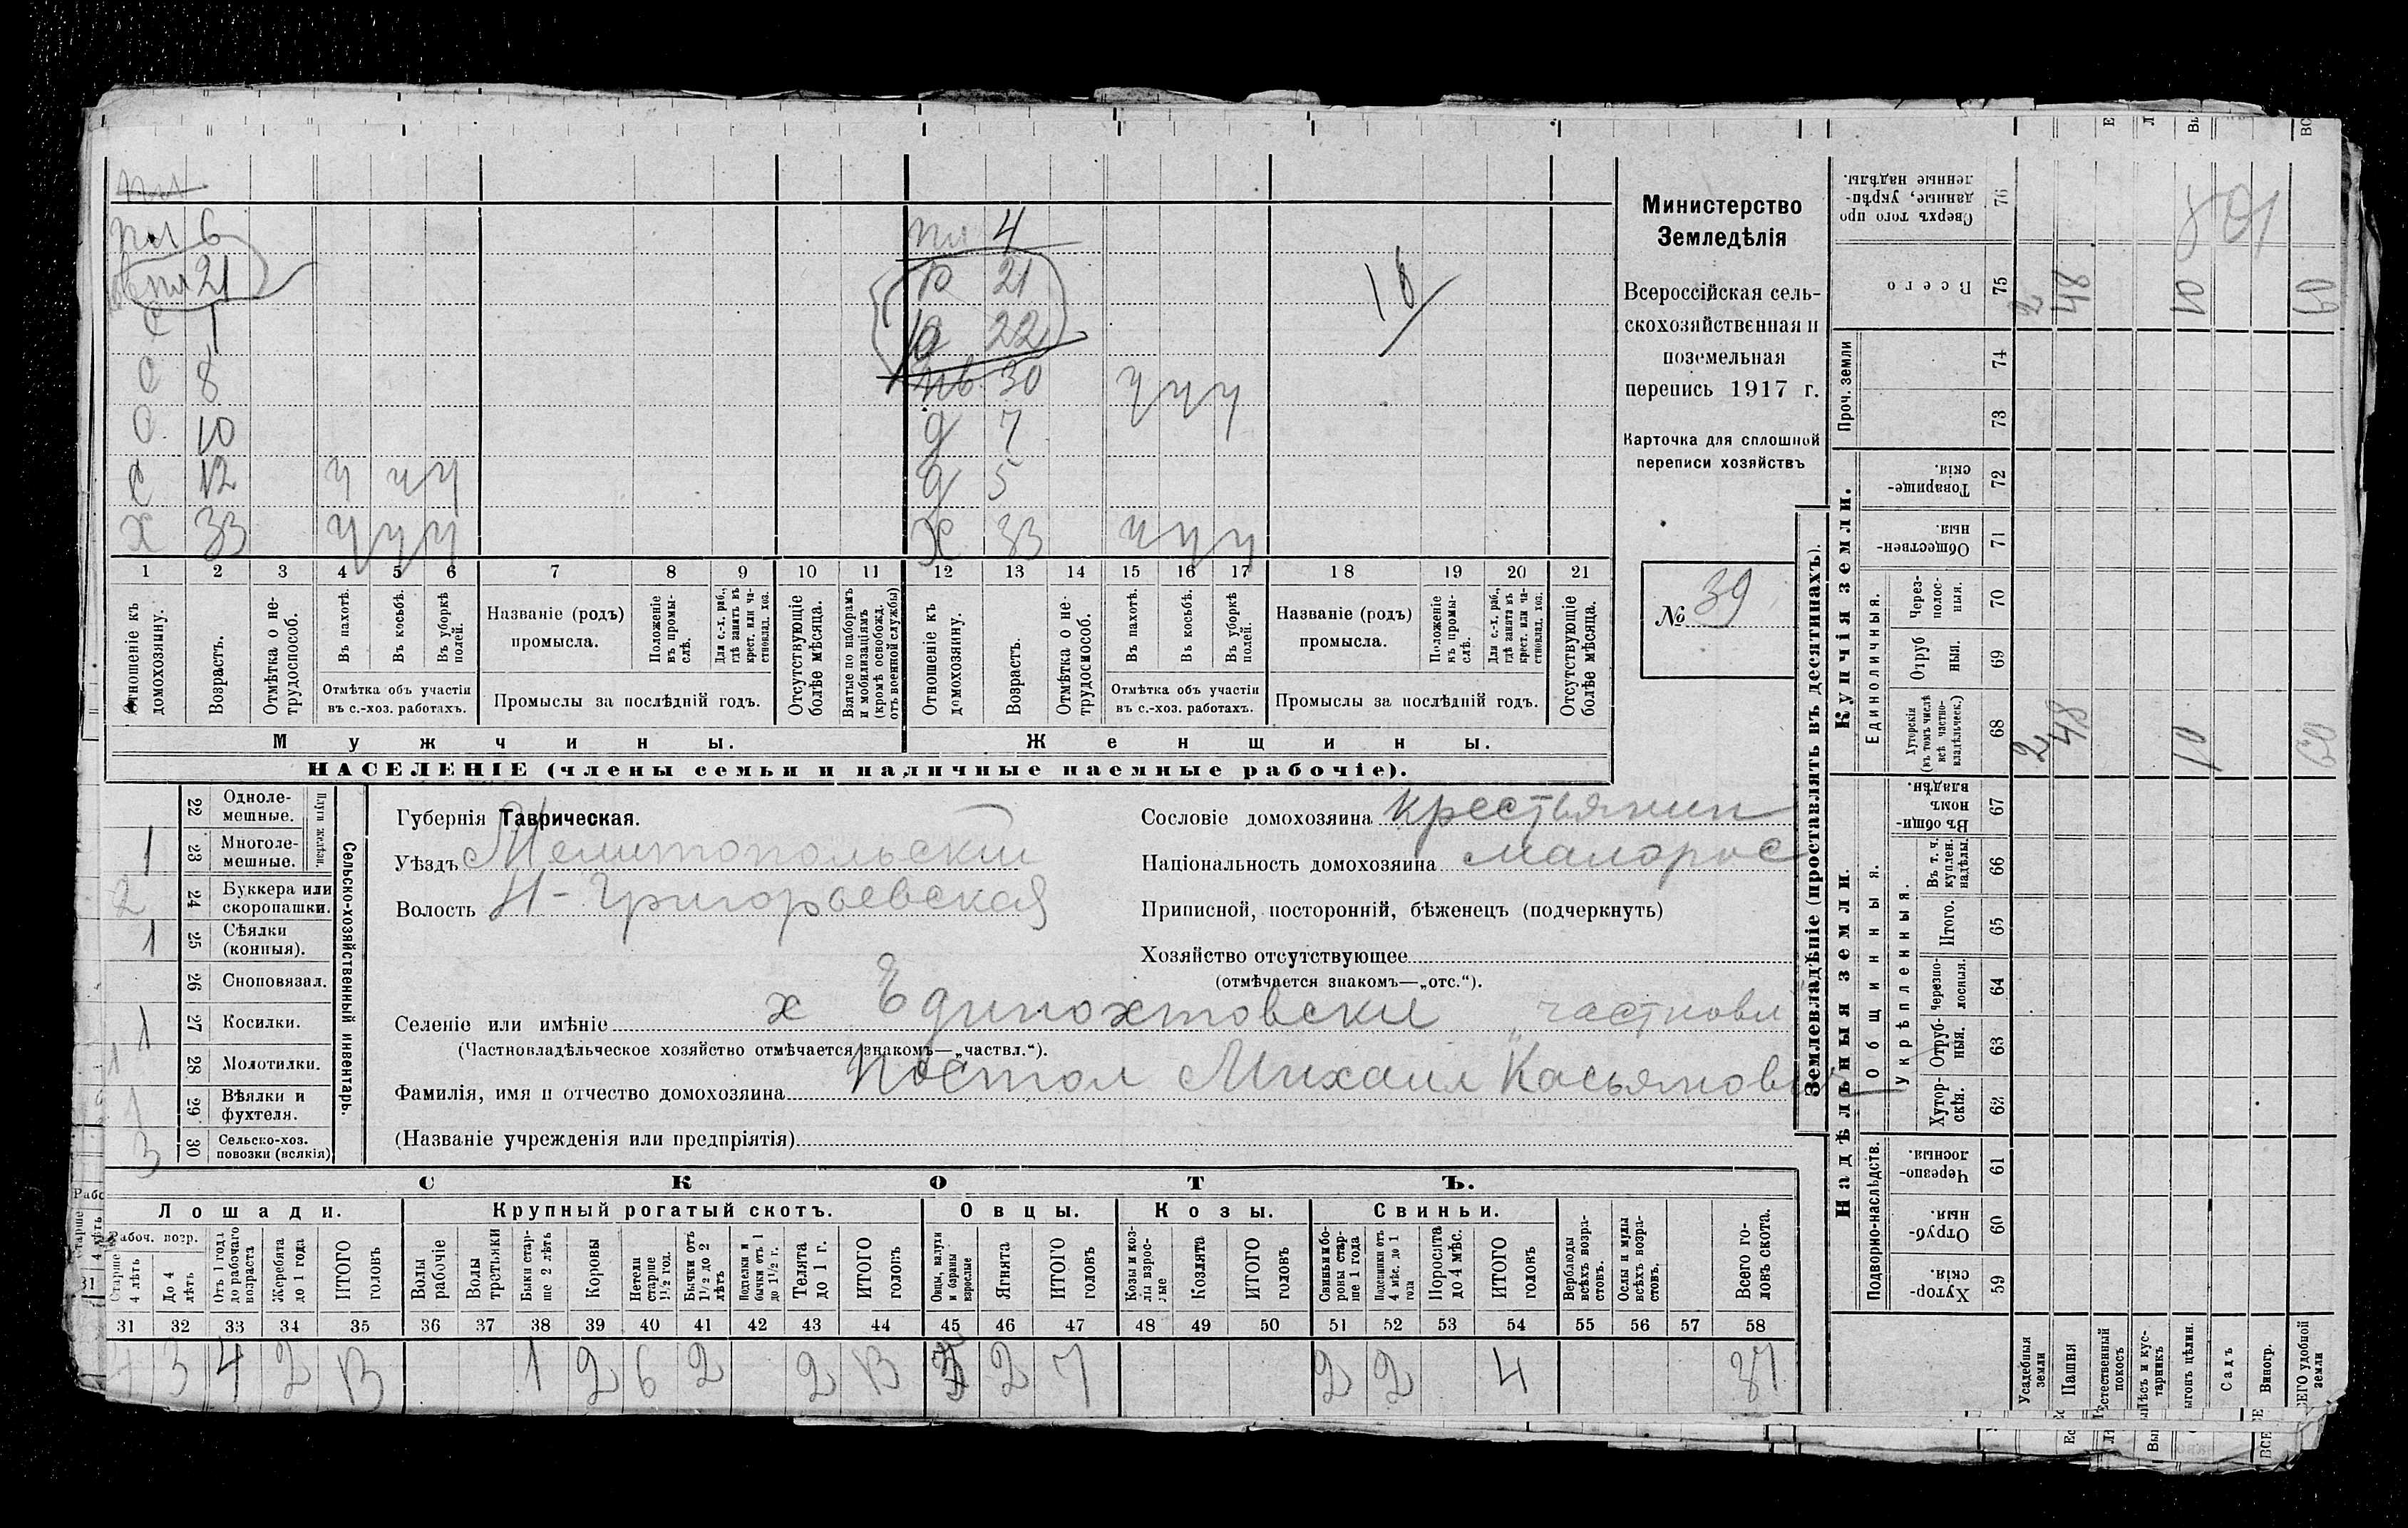 пл
пл 6
пл 21
С 1
С 8
С 10
С 12 ч ч ч
Х 33 ч ч ч
пл 4
р 21
р 22
30 ч ч ч
д 7
д 5
Х 33 ч ч ч
16
1 2 3 4 5 6 7 8 9 10 11 12 13 14 15 16 17 18 19 20 21
Отношеніе къ домохозяину.
Возрастъ.
Отмѣтка о не-
трудоспособ.
Въ пахотѣ.
Въ косьбѣ.
Въ уборкѣ полей.
Отмѣтка объ участіи
въ с.-хоз. работахъ.
Названіе (родъ)
промысла.
Положеніе въ промы-
слѣ.
Для с.-х. раб.,
гдѣ занятъ въ
крест. или ча-
стновлад. хоз.
Промыслы за послѣдній годъ.
Отсутствующіе
болѣе мѣсяца.
Взятые по наборамъ
и мобилизаціямъ
(кромѣ освобожд.
отъ военной службы)
Отношеніе къ
домохозяину.
Возрастъ.
Отмѣтка о не-
трудоспособ.
Въ пахотѣ.
Въ косьбѣ.
Въ уборкѣ полей.
Отмѣтка объ участіи
въ с.-хоз. работахъ.
Названіе (родъ)
промысла.
Положеніе въ промы-
слѣ.
Для с.-х. раб.,
гдѣ занята въ
крест. или ча-
стновлад. хоз.
Промыслы за послѣдній годъ.
Отсутствующіе
болѣе мѣсяца.
Мужчины.
Женщины.
НАСЕЛЕНІЕ (члены семьи и наличные наемные рабочіе).
Министерство
Земледѣлія
Всероссійская сель-
скохозяйственная и
поземельная
перепись 1917 г.
Карточка для сплошной
переписи хозяйствъ
№ 39
22 Одноле-
мешные.
Плуги желѣзн.
1 23 Многоле-
мешные.
2 24 Буккера или
скоропашки.
1 25 Сѣялки
(конныя).
26 Сноповязал.
1 27 Косилки.
1 28 Молотилки.
1 29 Вѣялки и
фухтеля.
3 30 Сельско-хоз.
повозки (всякія)
Сельско-хозяйственный инвентарь.
Губернія Таврическая.
Уѣздъ Мелитопольскій
Волость Н-Григорьевская
Сословіе домохозяина крестьянин
Національность домохозяина малорос
Приписной, посторонній, бѣженецъ (подчеркнуть)
Хозяйство отсутствующее
(отмѣчается знакомъ—„отс.“).
Селеніе или имѣніе х частновл
(Частновладѣльческое хозяйство отмѣчается знакомъ—„частвл.“).
Фамилія, имя и отчество домохозяина Постол Михаил Касьянович
(Названіе учрежденія или предпріятія)
СКОТЪ.
Лошади.
Крупный рогатый скотъ.
Овцы.
Козы.
Свиньи.
Рабоч. возр.
Старше 4 лѣтъ
До 4 лѣтъ
Отъ 1 года
до рабочаго
возраста
Жеребята
до 1 года
ИТОГО головъ
Волы рабочіе
Волы третьяки
Быки стар-
ше 2 лѣтъ
Коровы
Нетели старше
1½ год.
Бычки отъ
1½ до 2
лѣтъ
Подтелки и
бычки отъ 1
до 1½ г.
Телята до 1 г.
ИТОГО головъ
Овцы, валухи
и бараны
взрослые
Ягнята
ИТОГО головъ
Козы и коз-
лы взрос-
лые
Козлята
ИТОГО головъ
Свиньи и бо-
ровы стар-
ше 1 года
Подсвинки отъ
4 мѣс. до 1
года
Поросята
до 4 мѣс.
ИТОГО головъ
Верблюды
всѣхъ возра-
стовъ.
Ослы и мулы
всѣхъ возра-
стовъ.
Всего го-
ловъ скота.
31 32 33 34 35 36 37 38 39 40 41 42 43 44 45 46 47 48 49 50 51 52 53 54 55 56 57 58
4 3 4 2 13 1 2 6 2 2 13 2 7 2 2 4 37
Землевладѣніе (проставлять въ десятинахъ).
Надѣльныя земли.
Купчія земли.
Проч. земли
Подворно-наслѣдств.
Общинныя.
Укрѣпленныя.
Единоличныя.
Хутор-
скія. 59
Отруб-
ныя. 60
Черезпо-
лосныя. 61
Хутор-
скія. 62
Отруб-
ныя. 63
Черезпо-
лосныя. 64
Итого. 65
Въ т. ч.
куплен.
надѣлы. 66
Въ общи-
номъ
владѣн. 67
Хуторскія
(въ томъ числѣ
всѣ частно-
владѣльческ.) 68 2 48 10 60
Отруб
ныя. 69
Через-
полос-
ныя. 70
Обществен-
ныя. 71
Товарище-
скія. 72
73
74
Всего 75 2 48 10 60
Сверхъ того про
данные, укрѣп-
ленные надѣлы. 76
801
Усадебныя
земли
Пашня
Естественный
покосъ
Лѣсъ и кус-
тарникъ
Выгонъ цѣлин.
Садъ
Виногр.
ВСЕГО удобной
земли